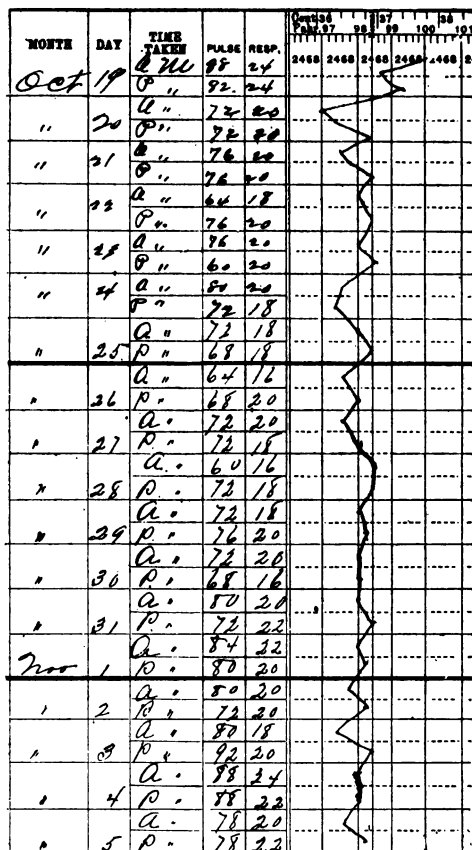 Cent 36 37 38
MONTH DAY TIME TAKEN PULSE RESP. Fahr. 97 98 99 100 101
2468 2468 2468 2468 2
Oct 19 a m 98 24
P " 92 24
a " 72 20
" 20 P " 72 20
a " 76 20
" 21 P " 76 20
a " 64 18
" 22 P " 76 20
" 23 a " 76 20
P " 60 20
" 24 a " 80 20
P " 72 18
a " 72 18
" 25 P " 68 18
a " 64 16
" 26 P " 68 20
a " 72 20
" 27 P " 72 18
a " 60 16
" 28 P " 72 18
a " 72 18
" 29 P " 76 20
a " 72 20
" 30 P " 68 16
a " 80 20
" 31 P " 72 22
a " 84 22
Nov 1 P " 80 20
a " 80 20
" 2 P " 72 20
a " 80 18
" 3 P " 92 20
a " 88 24
" 4 P " 88 22
a " 78 20
" 5 P " 78 22